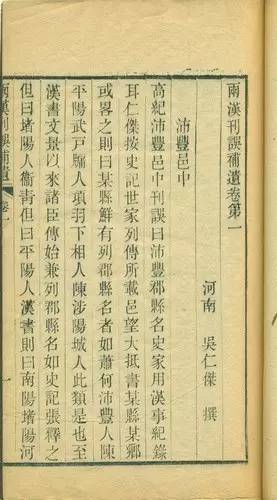 兩漢刊誤補遺卷第一
河南 吳仁傑 撰
沛豐邑中
高紀沛豐邑中刊誤曰沛豐郡縣名史家用漢事紀錄
耳仁傑按史記世家列傳所載邑望大抵書某縣某鄉
或畧之則曰某縣鮮有列郡縣名者如蕭何沛豐人陳
平陽武戶牖人項羽下相人陳涉陽城人此類是也至
漢書文景以來諸臣傳始兼列郡縣名如史記張釋之
但曰堵陽人衞靑但曰平陽人漢書則曰南陽堵陽河
兩漢刊誤補遺 卷一
一